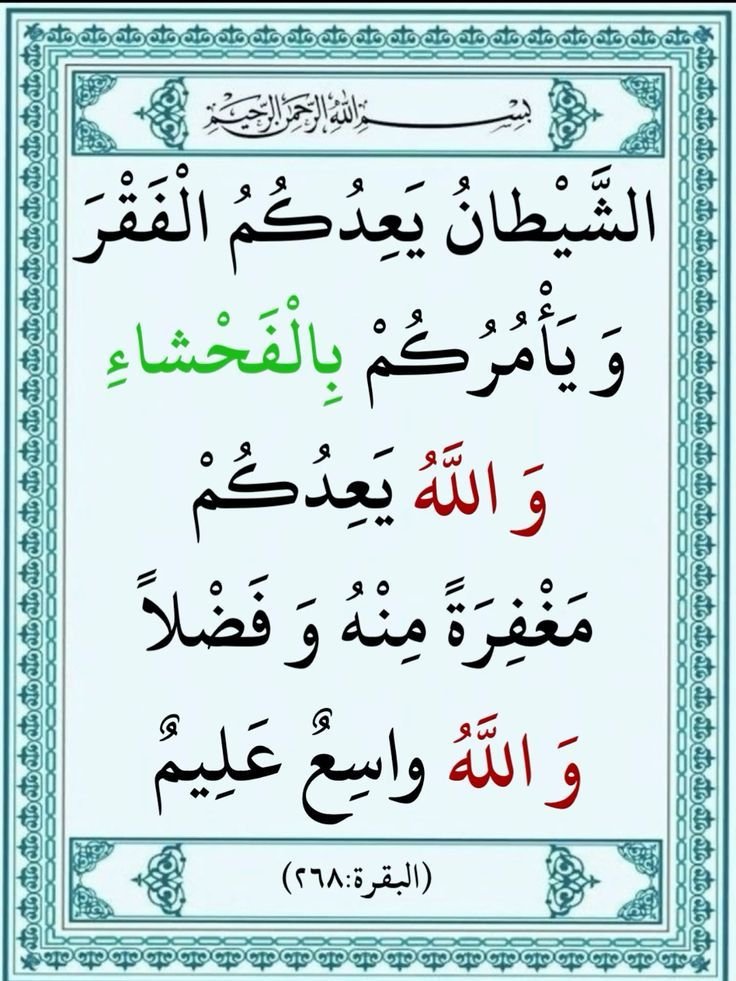 بِسْمِ اللهِ الرَّحْمنِ الرَّحِيمِ
الشَّيْطانُ يَعِدُكُمُ الْفَقْرَ
وَ يَأْمُرُكُمْ بِالْفَحْشاءِ
وَ اللَّهُ يَعِدُكُمْ
مَغْفِرَةً مِنْهُ وَ فَضْلاً
وَ اللَّهُ واسِعٌ عَلِيمٌ
(البقرة:٢٦٨)